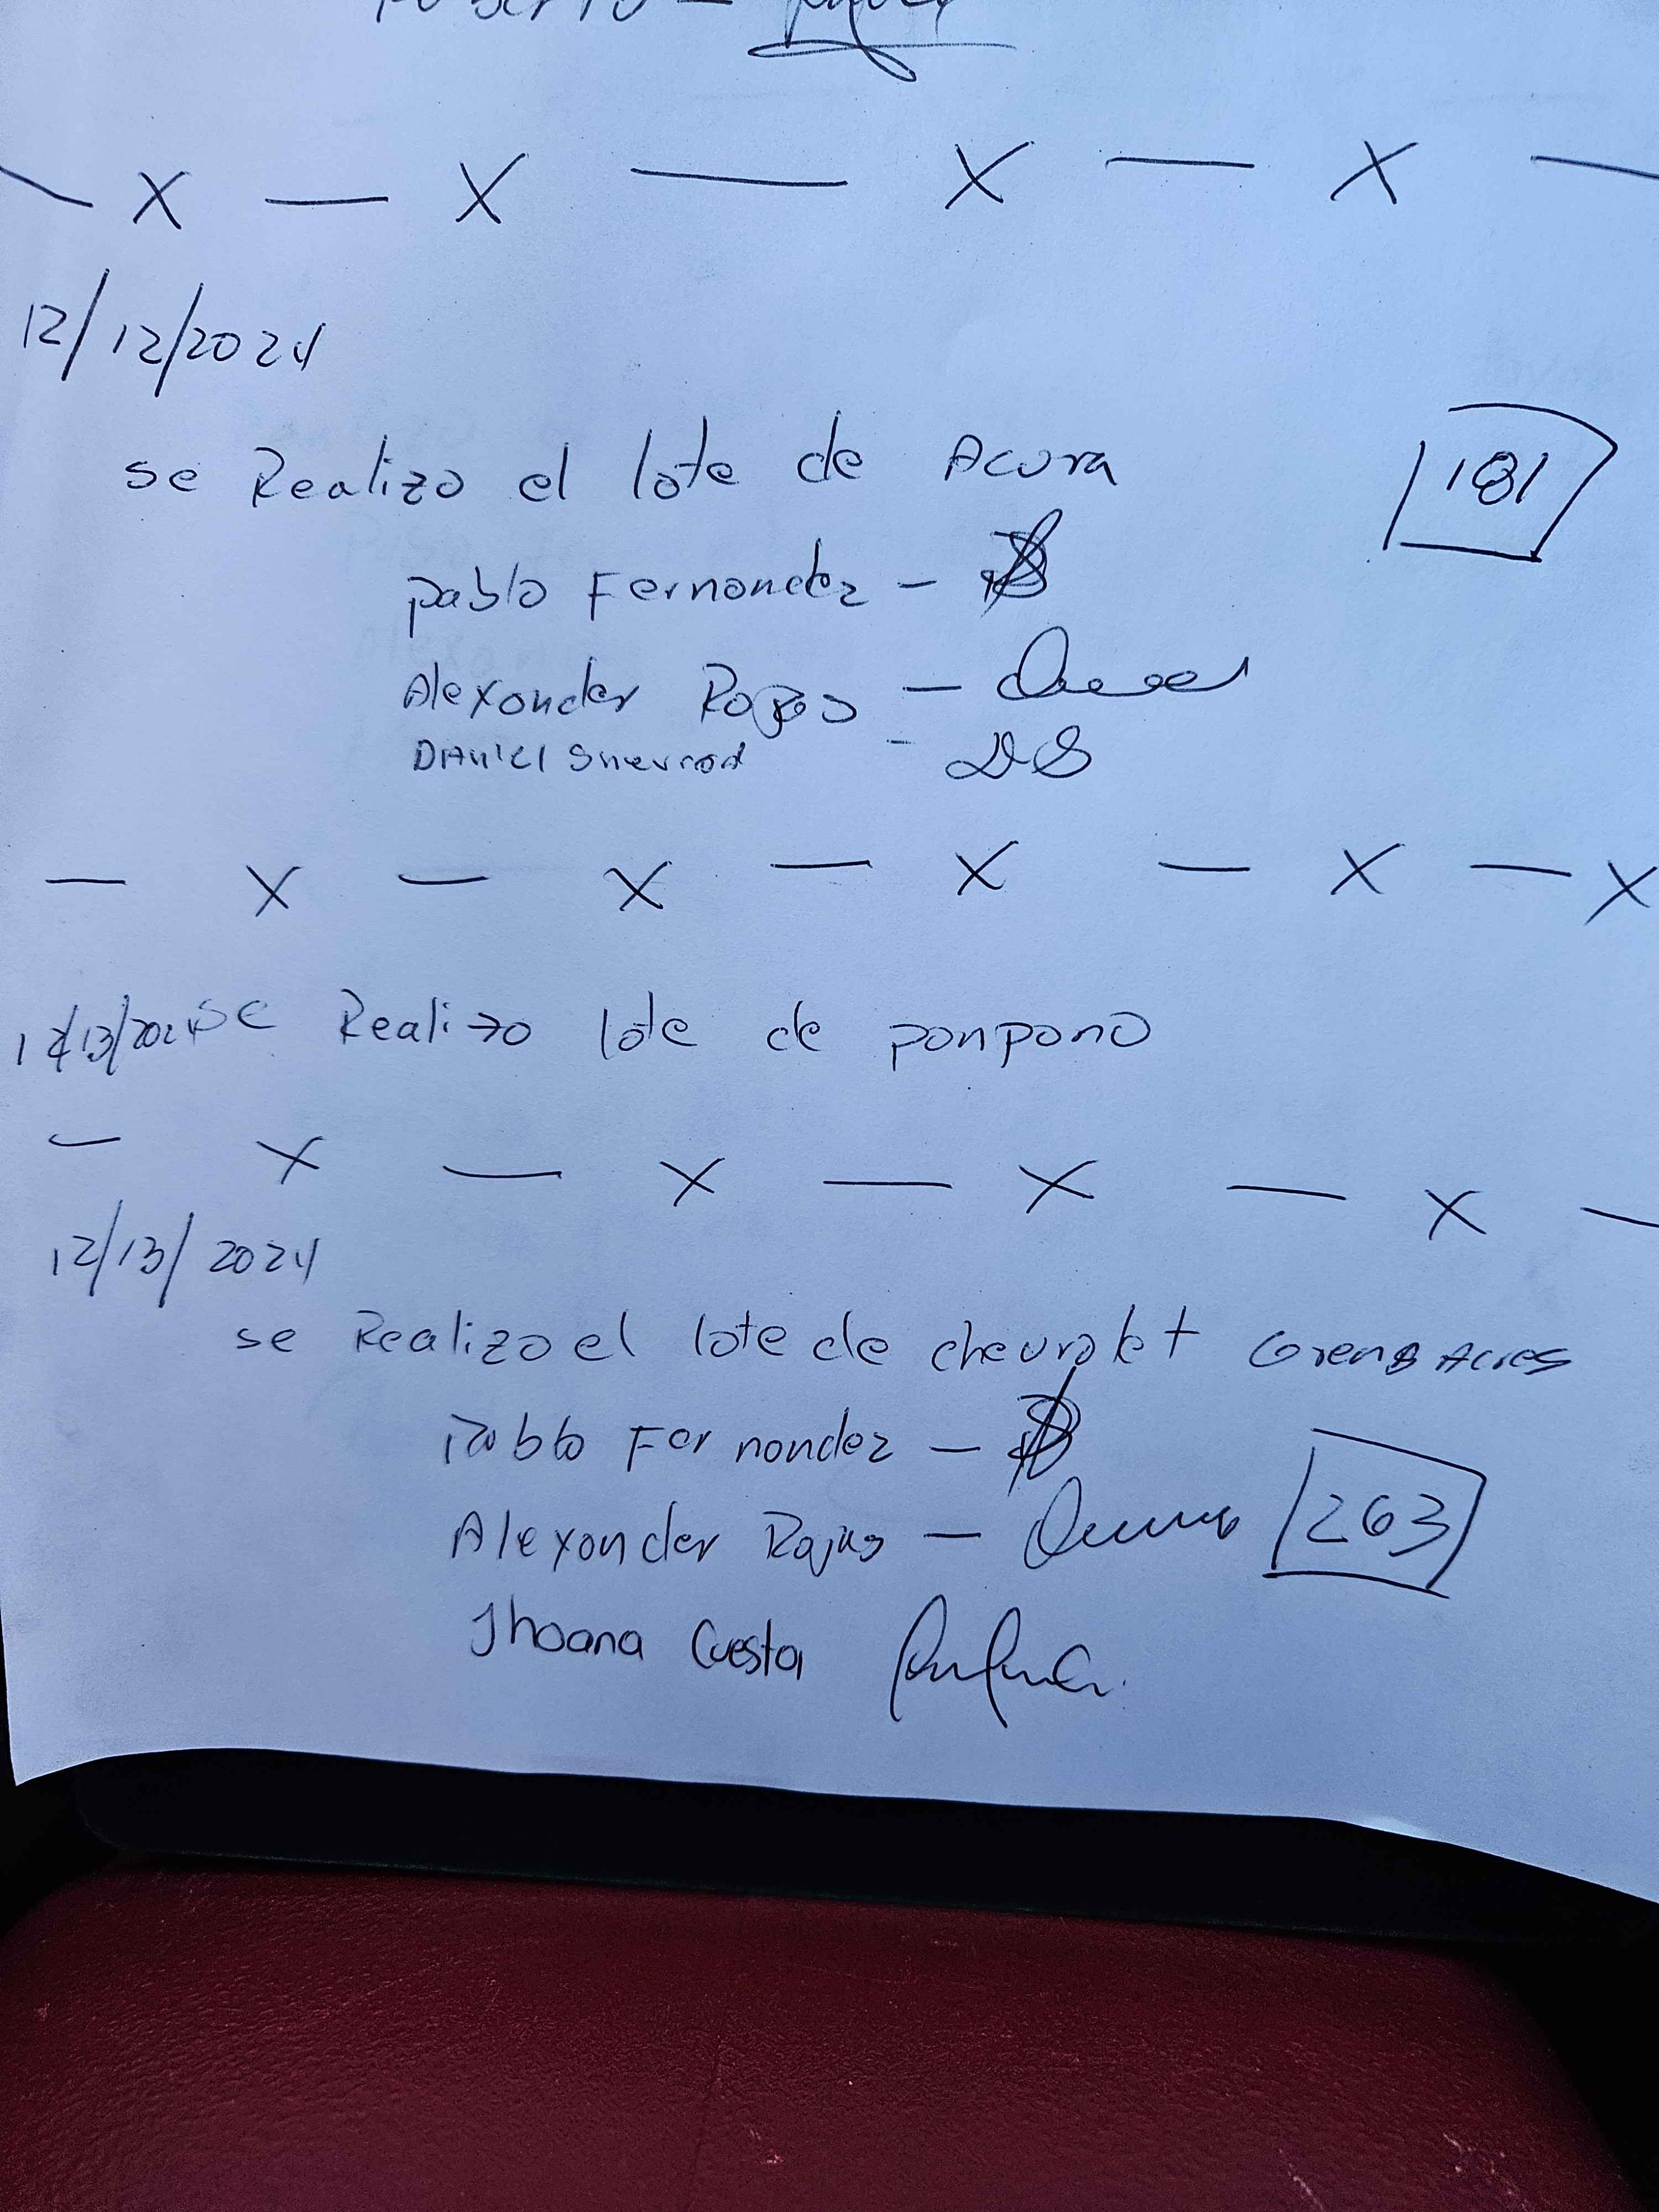 — X — X — X — X —
12/12/2024
se Realizo el lote de Acura
181
pablo Fernandez —
Alexander Rojas —
Daniel —
— X — X — X — X — X
12/13/2024 se Realizo lote de ponpano
— X — X — X — X —
12/13/2024
se Realizo el lote de chevrolet Grens Acres
Pablo Fernandez —
Alexander Rojas —
263
Jhoana Cuesta